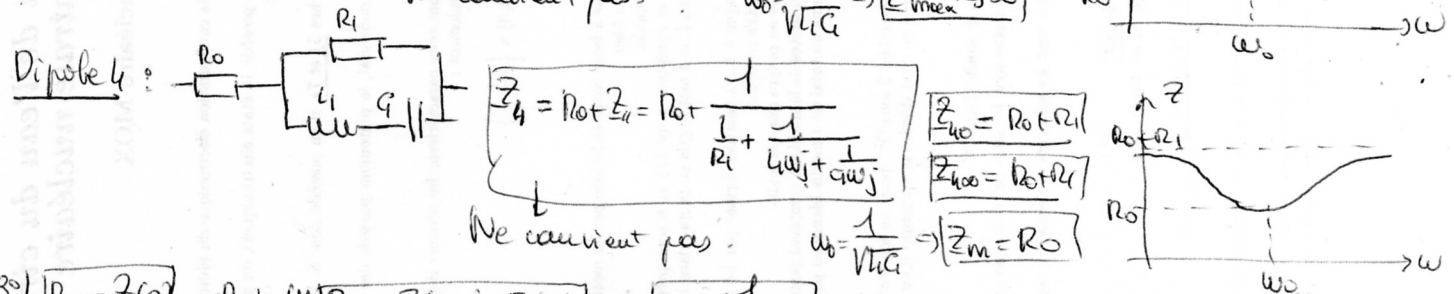 ω₀ = 1/√(L₁C₁)
ω₀
→ω
Dipôle 4 :
R₀
R₁
L₁ C₁
Z₄ = R₀ + Z₁₁ = R₀ + 1/(1/R₁ + 1/(L₁ωj + 1/(C₁ωj)))
Z₄₀ = R₀+R₁
Z₄∞ = R₀+R₁
Ne convient pas.
ω₀ = 1/√(L₁C₁) => Zm = R₀
Z
R₀+R₁
R₀
ω₀
ω